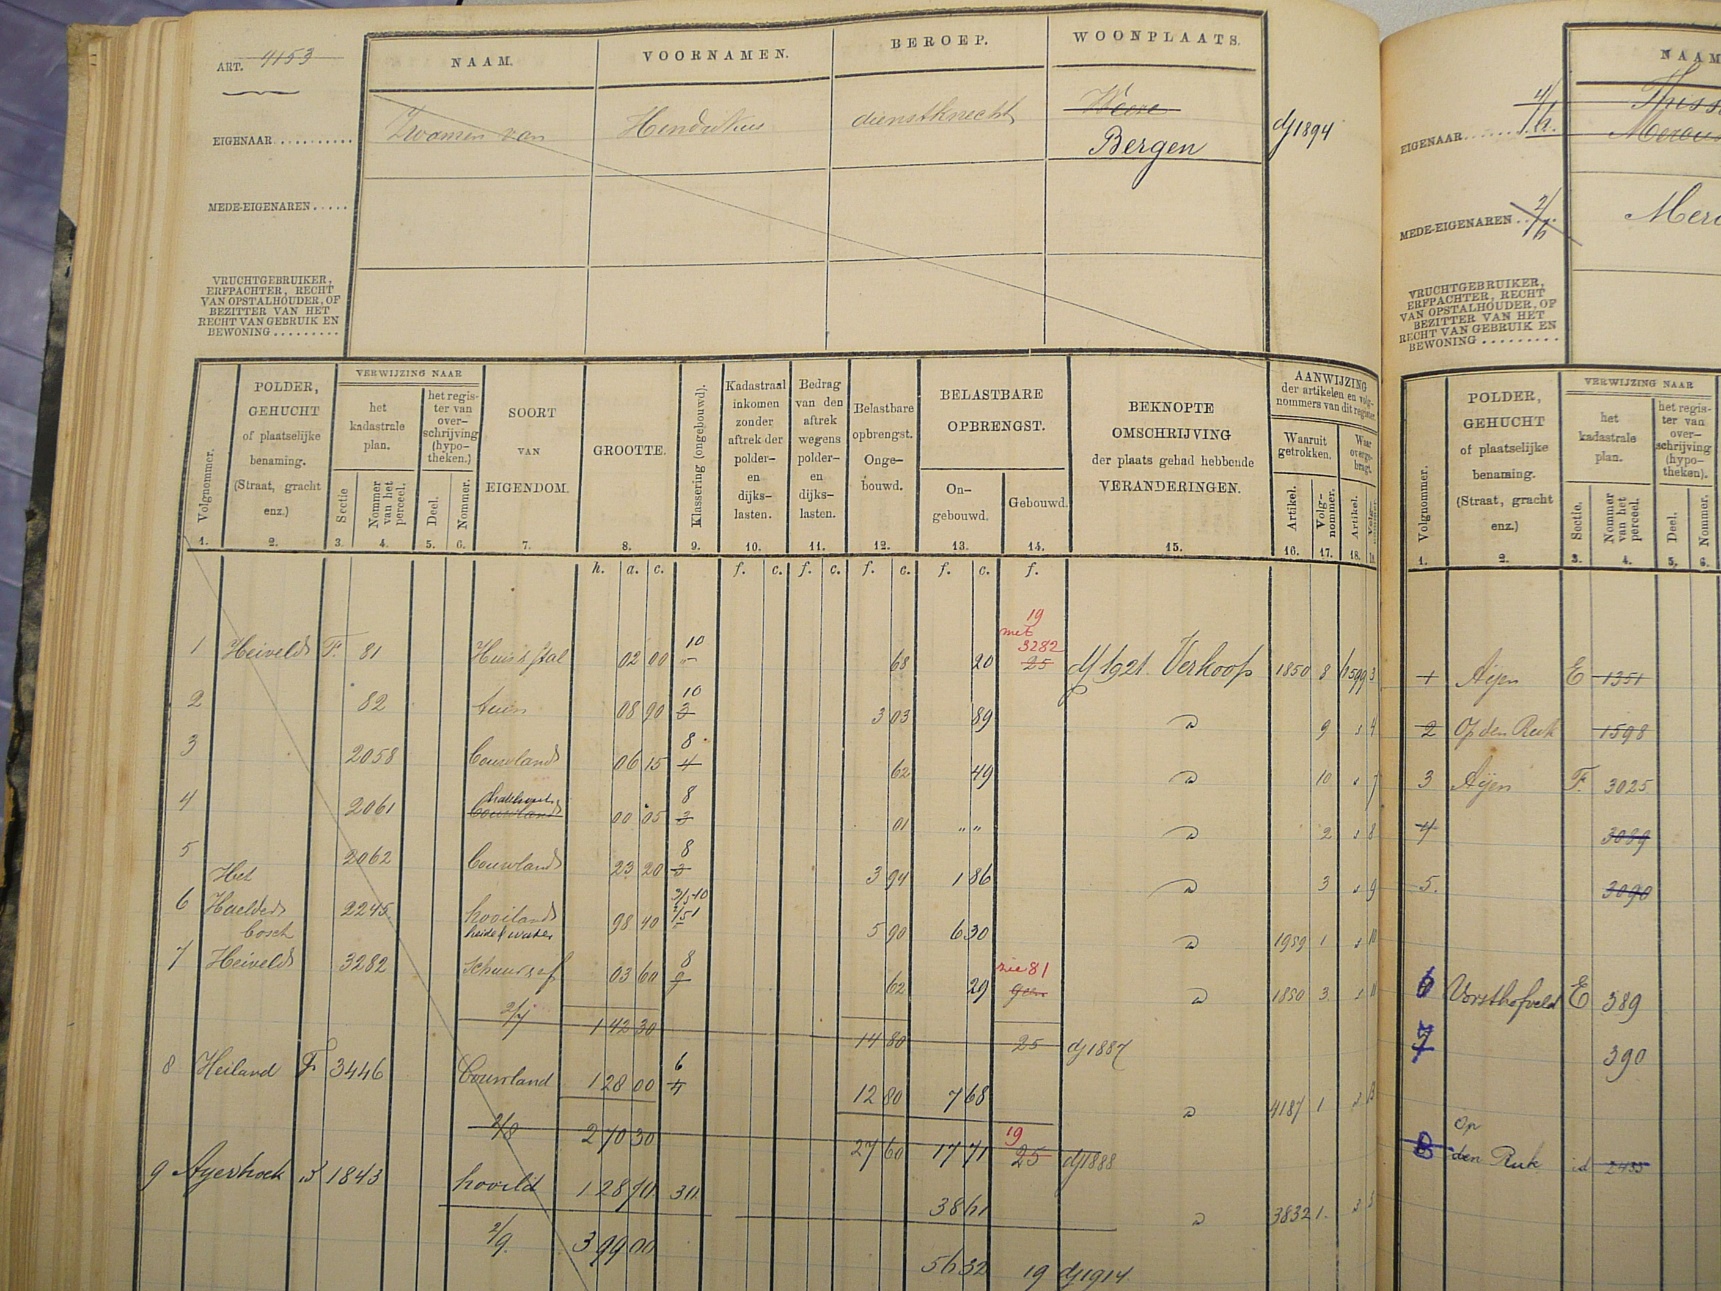 ART. 4153
NAAM. VOORNAMEN. BEROEP. WOONPLAATS.
EIGENAAR .......... Zwamen van Hendrikus dienstknecht Weere
Bergen
dj 1894
MEDE-EIGENAREN .....
VRUCHTGEBRUIKER,
ERFPACHTER, RECHT
VAN OPSTALHOUDER, OF
BEZITTER VAN HET
RECHT VAN GEBRUIK EN
BEWONING .........
Volgnommer.
POLDER,
GEHUCHT
of plaatselijke
benaming.
(Straat, gracht
enz.)
VERWIJZING NAAR
het
kadastrale
plan.
Sectie
Nommer
van het
perceel.
het regis-
ter van
over-
schrijving
(hypo-
theken.)
Deel.
Nommer.
SOORT
VAN
EIGENDOM.
GROOTTE.
Klasseering (ongebouwd).
Kadastraal
inkomen
zonder
aftrek der
polder-
en
dijks-
lasten.
Bedrag
van den
aftrek
wegens
polder-
en
dijks-
lasten.
Belastbare
opbrengst.
Onge-
bouwd.
BELASTBARE
OPBRENGST.
On-
gebouwd.
Gebouwd.
BEKNOPTE
OMSCHRIJVING
der plaats gehad hebbende
VERANDERINGEN.
AANWIJZING
der artikelen en volg-
nommers van dit register
Waaruit
getrokken.
Artikel.
Volg-
nommer.
Artikel.
1. 2. 3. 4. 5. 6. 7. 8. 9. 10. 11. 12. 13. 14. 15. 16. 17. 18.
h. a. c. f. c. f. c. f. c. f. c. f.
19
met
3282
1 Heivelds F. 81 Huis & stal 02 00 10 68 20 25 dj 1921. Verkoop 1850 8 3
2 82 tuin 08 90 10 3 3 03 89 9 4
3 2058 bouwland 06 15 8 4 62 49 10 7
4 2061 bouwland 00 05 8 3 01 „ „ 2 8
5 2062 bouwland 23 20 8 3 3 94 1 86 3 9
Het
6 Haelders 2245 hooiland 98 40 5 90 6 30 1959 1 10
bosch heide & water
7 Heivelds 3282 Schuur & 03 60 8 9 62 29 zie 81 1850 3 11
2/7 1 42 30 14 80 25 dj 1887
8 Heiland F 3446 bouwland 1 28 00 6 4 12 80 7 68 4187 1
2/8 2 70 30 27 60 17 71 19 25 dj 1888
9 Ayerhoek 1843 hooild 1 28 70 38 61 3832 1.
2/9. 3 99 00 56 32 19 dj 1914
NAAM
EIGENAAR .......
MEDE-EIGENAREN ...
VRUCHTGEBRUIKER,
ERFPACHTER, RECHT
VAN OPSTALHOUDER, OF
BEZITTER VAN HET
RECHT VAN GEBRUIK EN
BEWONING .........
Volgnommer.
POLDER,
GEHUCHT
of plaatselijke
benaming.
(Straat, gracht
enz.)
VERWIJZING NAAR
het
kadastrale
plan.
Sectie.
Nommer
van het
perceel.
het regis-
ter van
over-
schrijving
(hypo-
theken).
Deel.
Nommer.
1. 2. 3. 4. 5. 6.
1 Aijen E 1351
2 Op den Ruk 1598
3 Aijen F. 3025
4 3089
5. 3090
6 Vorsthofveld E 389
7 390
Op
8 den Ruk id 2455